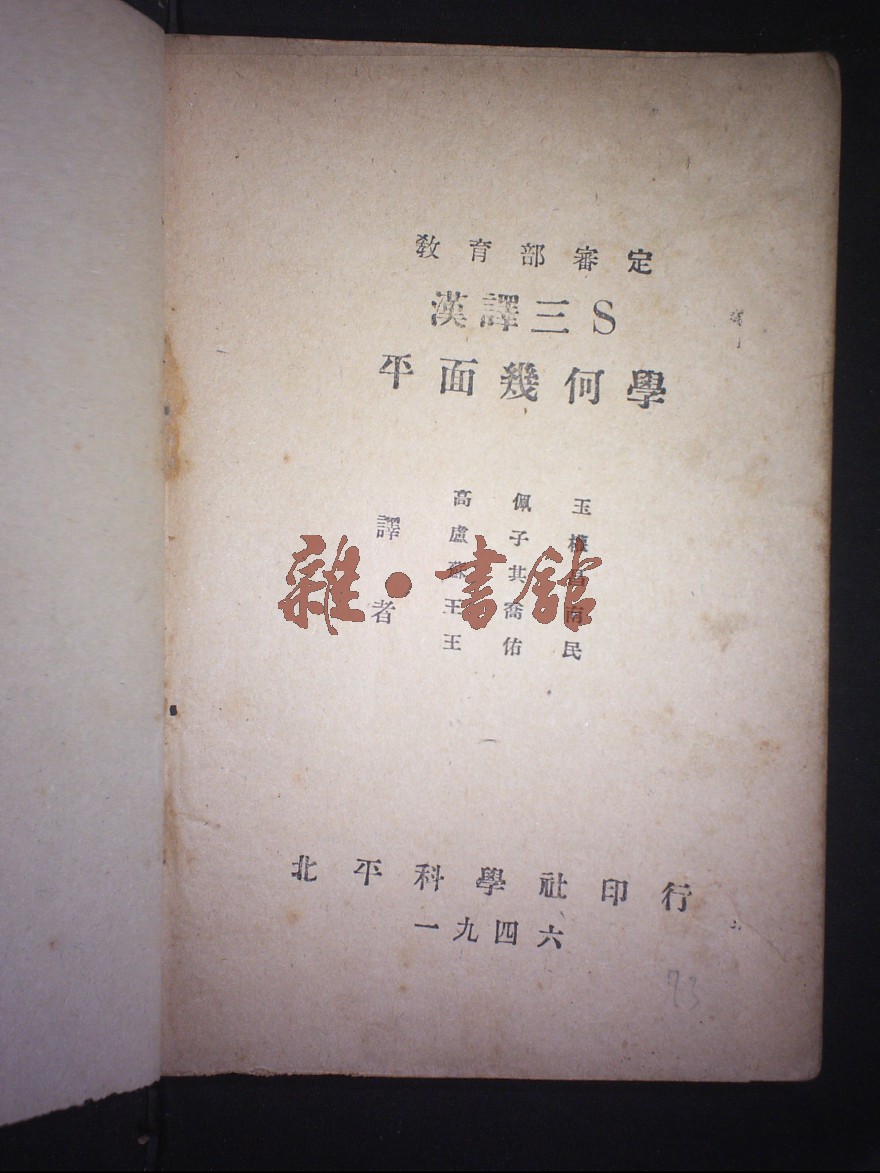 教育部審定
漢譯三S
平面幾何學
譯者
高佩玉
盧子權
蘇其昌
王喬南
王佑民
雜·書館
北平科學社印行
一九四六
93